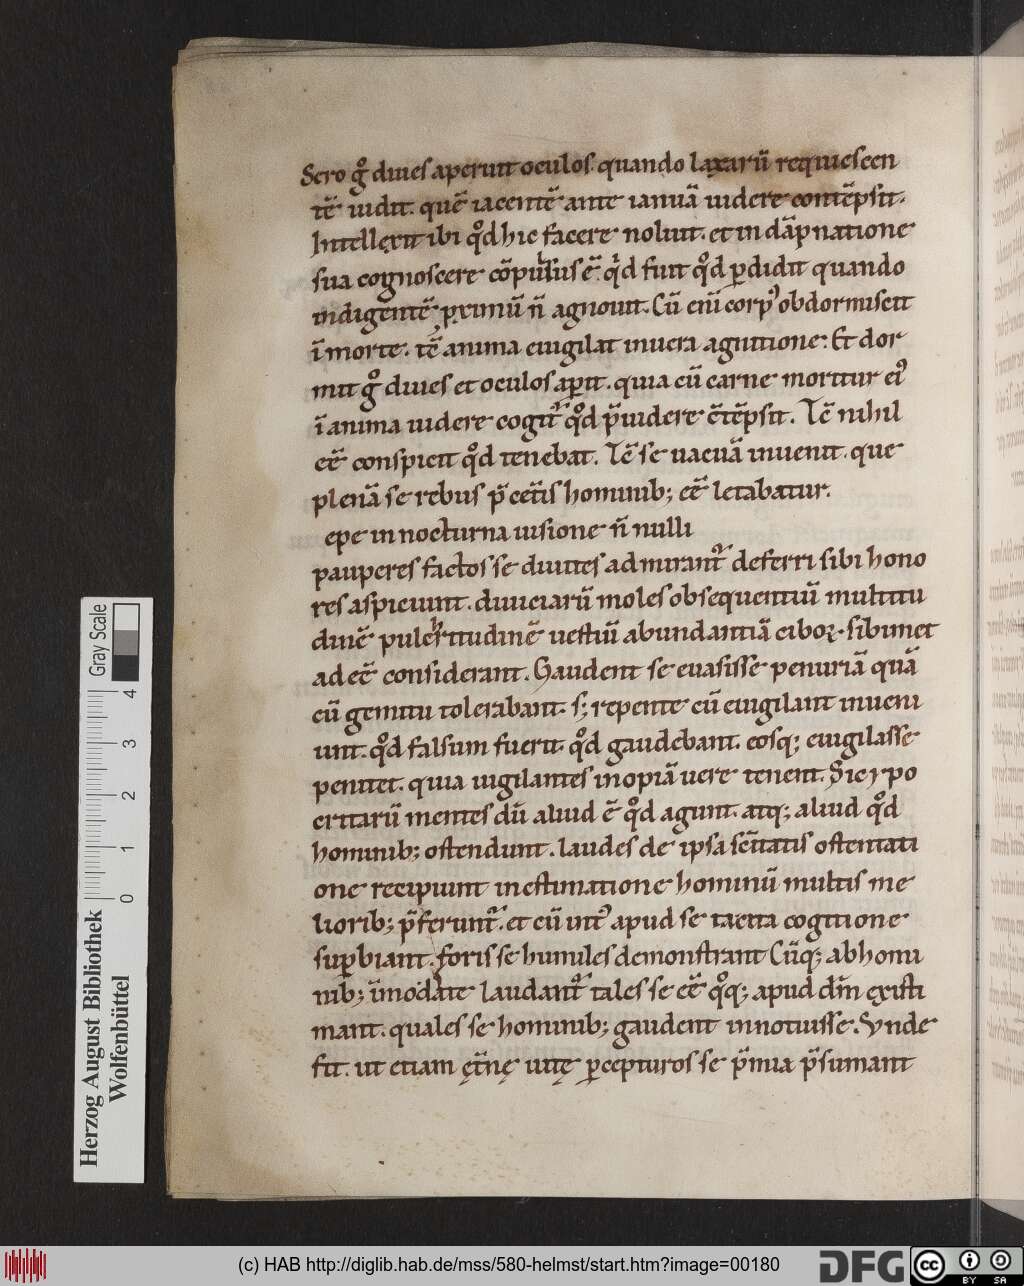 Sero g̊ diues aperuit oculos. quando lazarū requiescen
tē uidit. quē iacentē ante ianuā uidere contēpsit.
Intellexit ibi qd̊ hic facere noluit. et in dāpnatione
sua cognoscere cōpulsus ē. qd̊ fuit qd̊ p̱didit quando
indigentē p̱ximū n̄ agnouit. Cū eni̅ corpꝰ obdormiscit
ī morte. tc̄ anima euigilat in uera agnitione. Et dor
mit g̊ diues et oculos ap̱it. quia cū carne moritur eiꝰ
ī anima uidere cogit᷑ qd̊ p̄uidere c̄tēpsit. Tc̄ nihil
eē conspicit qd̊ tenebat. Tc̄ se uacuā inuenit. que
plenā se rebus p̄ cet̄is hominib; eē letabatur.
epe in nocturna uisione n̄ nulli
pauperes factos se diuites admirant᷑ deferri sibi hono
res aspiciunt. diuiciarū moles obsequentiū multitu
dinē pulcritudinē uestiū abundantiā ciboꝝ. sibimet
adeē considerant. Gaudent se euasisse penuriā quā
cū gemitu tolerabant. s; repente cū euigilant inueni
unt. qd̊ falsum fuerit qd̊ gaudebant. eosq; euigilasse
penitet. quia uigilantes inopiā uere tenent. Sic ypo
critarū mentes dū aliud ē qd̊ agunt. atq; aliud qd̊
hominib; ostendunt. laudes de ipsa sc̄itatis ostentati
one recipiunt in estimatione hominū multis me
liorib; p̄ferunt᷑. et cū intꝰ apud se tacita cogitatione
sup̱biant. foris se humiles demonstrant Cūq; ab homi
nib; īmoderate laudant᷑ tales se eē qq̊; apud dm̄ existi
mant. quales se hominib; gaudent innotuisse. Vnde
fit. ut etiam ęt̄nę uitę p̱cepturos se p̄mia p̄sumant
Herzog August Bibliothek
Wolfenbüttel
0 1 2 3 4
Gray Scale
(c) HAB http://diglib.hab.de/mss/580-helmst/start.htm?image=00180
DFG
cc
BY SA